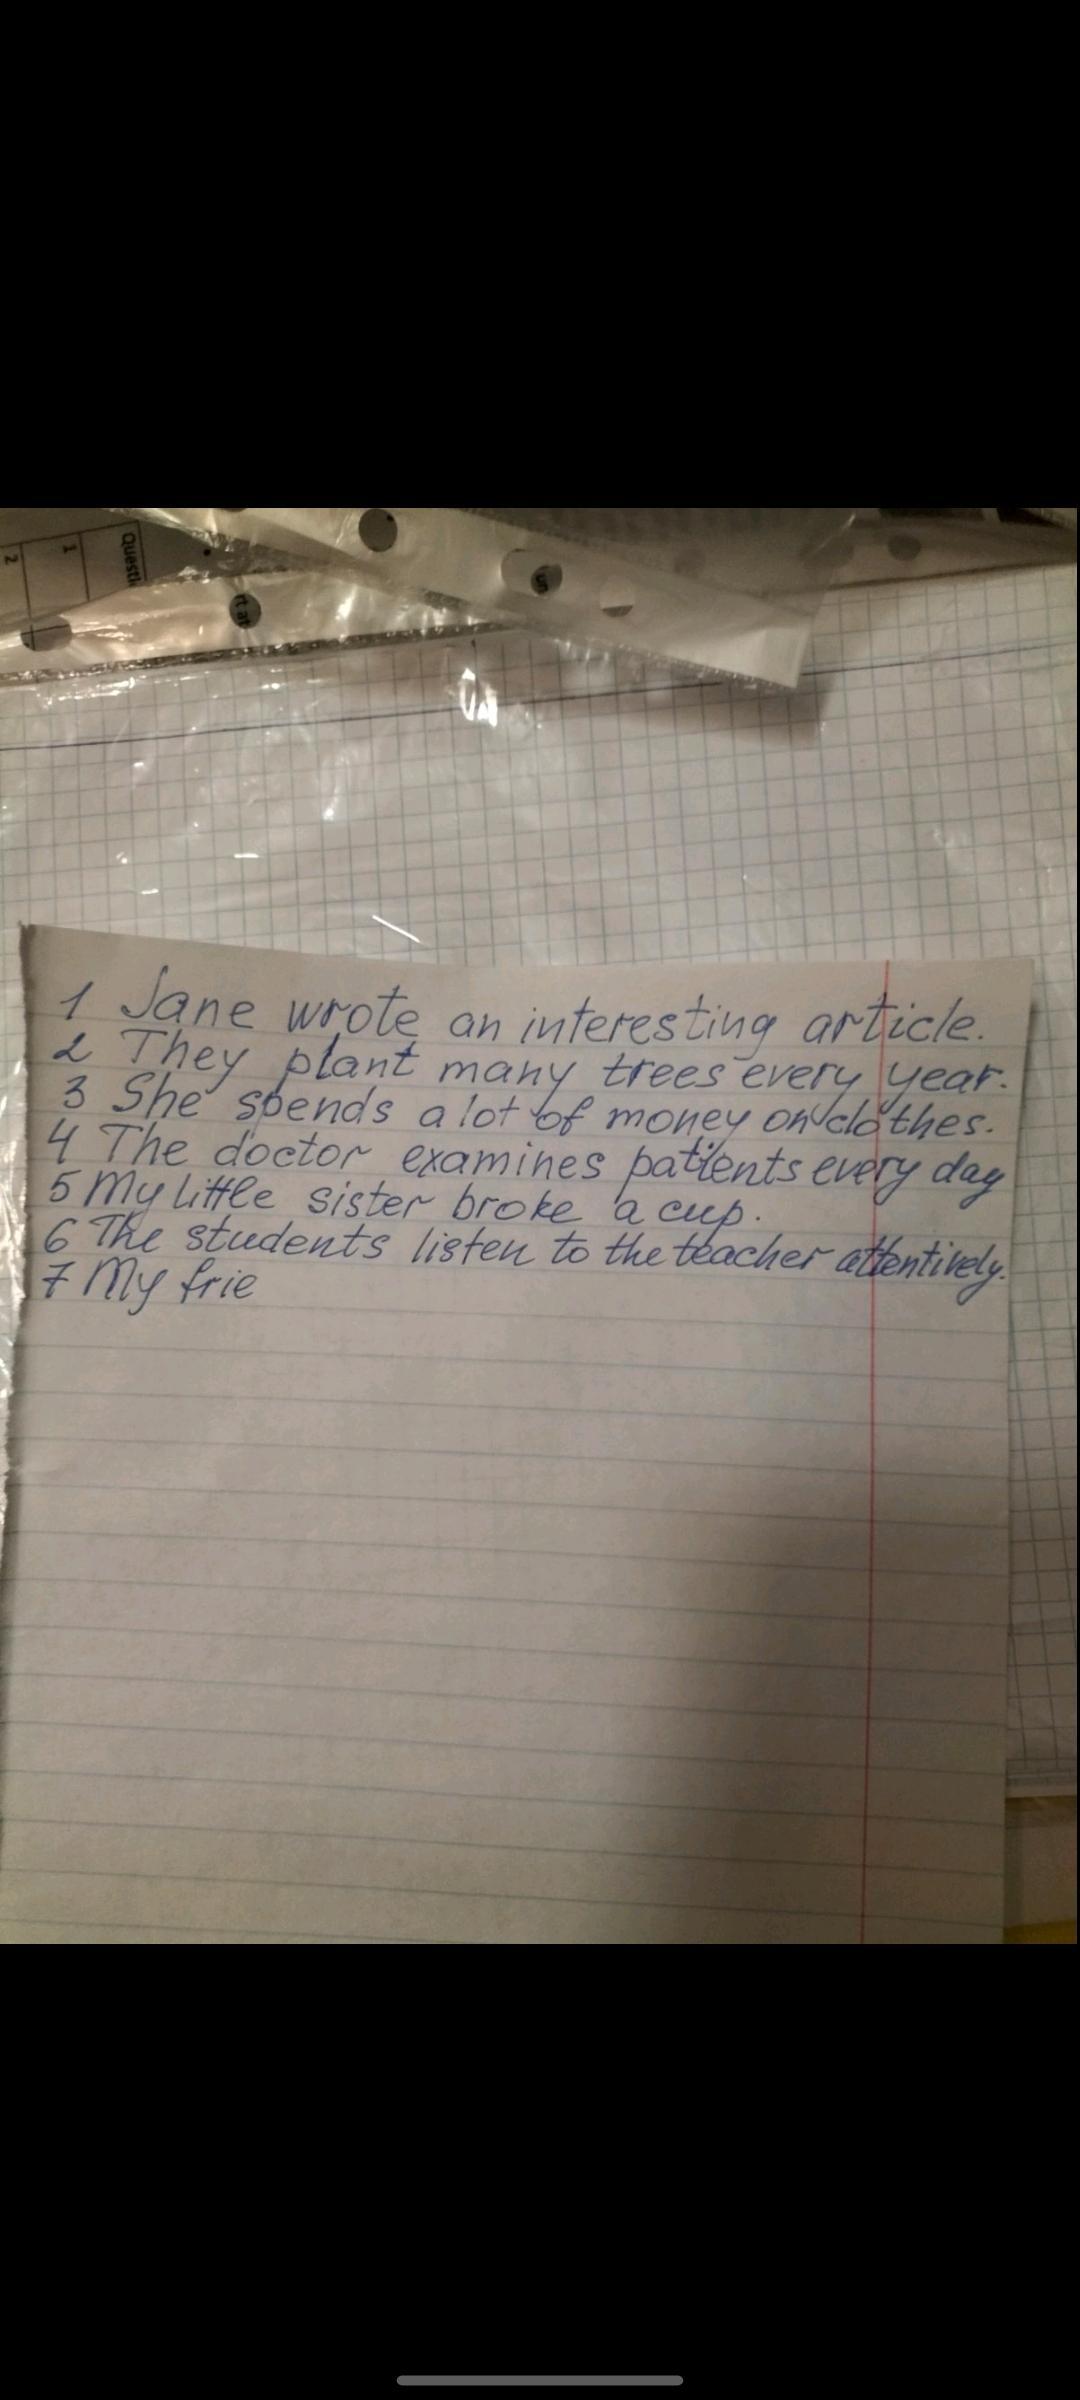 Questi
1
2
rt at
un
1 Jane wrote an interesting article.
2 They plant many trees every year.
3 She spends a lot of money on clothes.
4 The doctor examines patients every day
5 My little sister broke a cup.
6 The students listen to the teacher attentively.
7 My frie